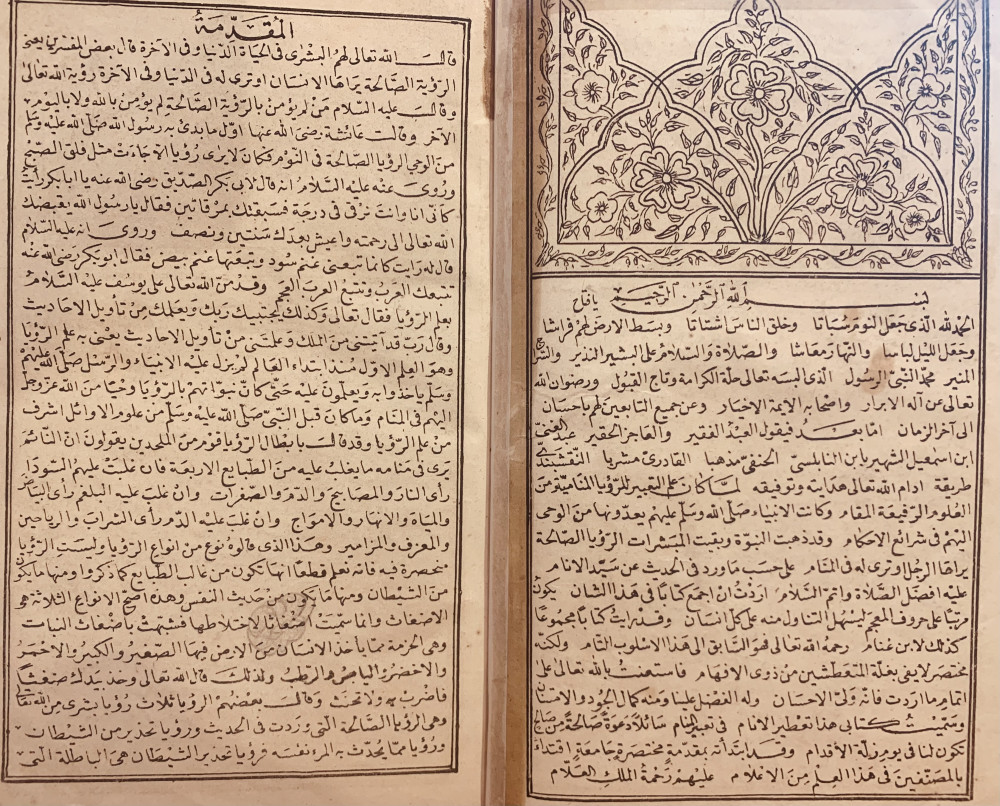 بسم الله الرحمن الرحيم يا فتاح
الحمد لله الذي جعل النوم سباتا وخلق الناس اشتاتا وبسط الارض لهم فراشا
وجعل الليل لباسا والنهار معاشا والصلاة والسلام على البشير النذير والسراج
المنير محمد النبي الرسول الذي البسه تعالى حلة الكرامة وتاج القبول ورضوان الله
تعالى عن آله الابرار واصحابه الايمة الاخيار وعن جميع التابعين لهم باحسان
الى آخر الزمان اما بعد فيقول العبد الفقير والعاجز الحقير عبد الغني
ابن اسمعيل الشهير بابن النابلسي الحنفي مذهبا القادري مشربا النقشبندي
طريقة ادام الله تعالى هدايته وتوفيقه لما كان علم التعبير للرؤيا المنامية من
العلوم الرفيعة المقام وكانت الانبياء صلى الله وسلم عليهم يعدونها من الوحي
اليهم في شرائع الاحكام وقد ذهبت النبوة وبقيت المبشرات الرؤيا الصالحة
يراها الرجل او ترى له في المنام على حسب ما ورد في الحديث عن سيد الانام
عليه افضل الصلاة واتم السلام اردت ان اجمع كتابا في هذا الشان يكون
مرتبا على حروف المعجم ليسهل التناول منه على كل انسان وقد رايت كتابا مجموعا
كذلك لابن غنام رحمه الله تعالى فهو السابق الى هذا الاسلوب التام ولكنه
مختصر لا يفي بغلة المتعطشين من ذوي الافهام فاستعنت بالله تعالى على
اتمام ما اردت فانه ولي الاحسان وله الفضل علينا ومنه كمال الجود والامتنان
وسميت كتابي هذا تعطير الانام في تعبير المنام سائلا دعوة صالحة من صالح
تكون لنا في يوم زلة الأقدام وقد ابتدأته بمقدمة مختصرة جامعة اقتداء
بالمصنفين في هذا العلم من الاعلام عليهم رحمة الملك العلام
المقدمة
قال الله تعالى لهم البشرى في الحياة الدنيا وفي الاخرة قال بعض المفسرين يعني
الرؤية الصالحة يراها الانسان او ترى له في الدنيا وفي الآخرة رؤية الله تعالى
وقال عليه السلام من لم يؤمن بالرؤية الصالحة لم يؤمن بالله ولا باليوم
الآخر وقالت عائشة رضي الله عنها اول ما بدئ به رسول الله صلى الله عليه وسلم
من الوحي الرؤيا الصالحة في النوم فكان لا يرى رؤيا الا جاءت مثل فلق الصبح
وروى عنه عليه السلام انه قال لابي بكر الصديق رضي الله عنه يا ابا بكر رأيت
كأني انا وانت نرقى في درجة فسبقتك بمرقاتين فقال يا رسول الله يقبضك
الله تعالى الى رحمته واعيش بعدك سنتين ونصف وروى انه عليه السلام
قال له رايت كانما تبعني غنم سود وتبعتها غنم بيض فقال ابو بكر رضي الله عنه
تتبعك العرب وتتبع العرب العجم وقد من الله تعالى على يوسف عليه السلام
بعلم الرؤيا فقال تعالى وكذلك يجتبيك ربك ويعلمك من تأويل الاحاديث
وقال رب قد آتيتني من الملك وعلمتني من تأويل الاحاديث يعني به علم الرؤيا
وهو العلم الاول منذ ابتداء العالم لم يزل عليه الانبياء والرسل صلى الله عليهم
وسلم يأخذوا به ويعلمون عليه حتى كان نبواتهم بالرؤيا وحيا من الله عز وجل
اليهم في المنام وما كان قبل النبي صلى الله عليه وسلم من علوم الاوائل اشرف
من علم الرؤيا وقد قال بابطال الرؤيا قوم من الملحدين يقولون ان النائم
يرى في منامه ما يغلب عليه من الطبايع الاربعة فان غلبت عليهم السودا
رأى النار والمصابيح والدم والصفرات وان غلب عليه البلغم رأى البياض
والمياه والانهار والامواج وان غلب عليه الدم رأى الشراب والرياحين
والمعزف والمزامير وهذا الذي قالوه نوع من انواع الرؤيا وليست الرؤيا
منحصرة فيه فانه نعلم قطعا انها تكون من غالب الطبايع كما ذكروا ومنها ما يكون
من الشيطان ومنها ما يكون من حديث النفس وهذا اصح الانواع الثلاثة هي
الاضغاث وانما سميت اضغاثا لاختلاطها فشبهت باضغاث النبات
وهي الحزمة مما يأخذ الانسان من الارض فيها الصغير والكبير والاحمر
والاخضر واليابس والرطب ولذلك قال الله تعالى وخذ بيدك ضغثا
فاضرب به ولا تحنث وقال بعضهم الرؤيا ثلاث رؤيا بشرى من الله تعالى
وهي الرؤيا الصالحة التي وردت في الحديث ورؤيا تحذير من الشيطان
ورؤيا مما يحدث به المرء نفسه فرؤيا تحذير الشيطان هي الباطلة التي